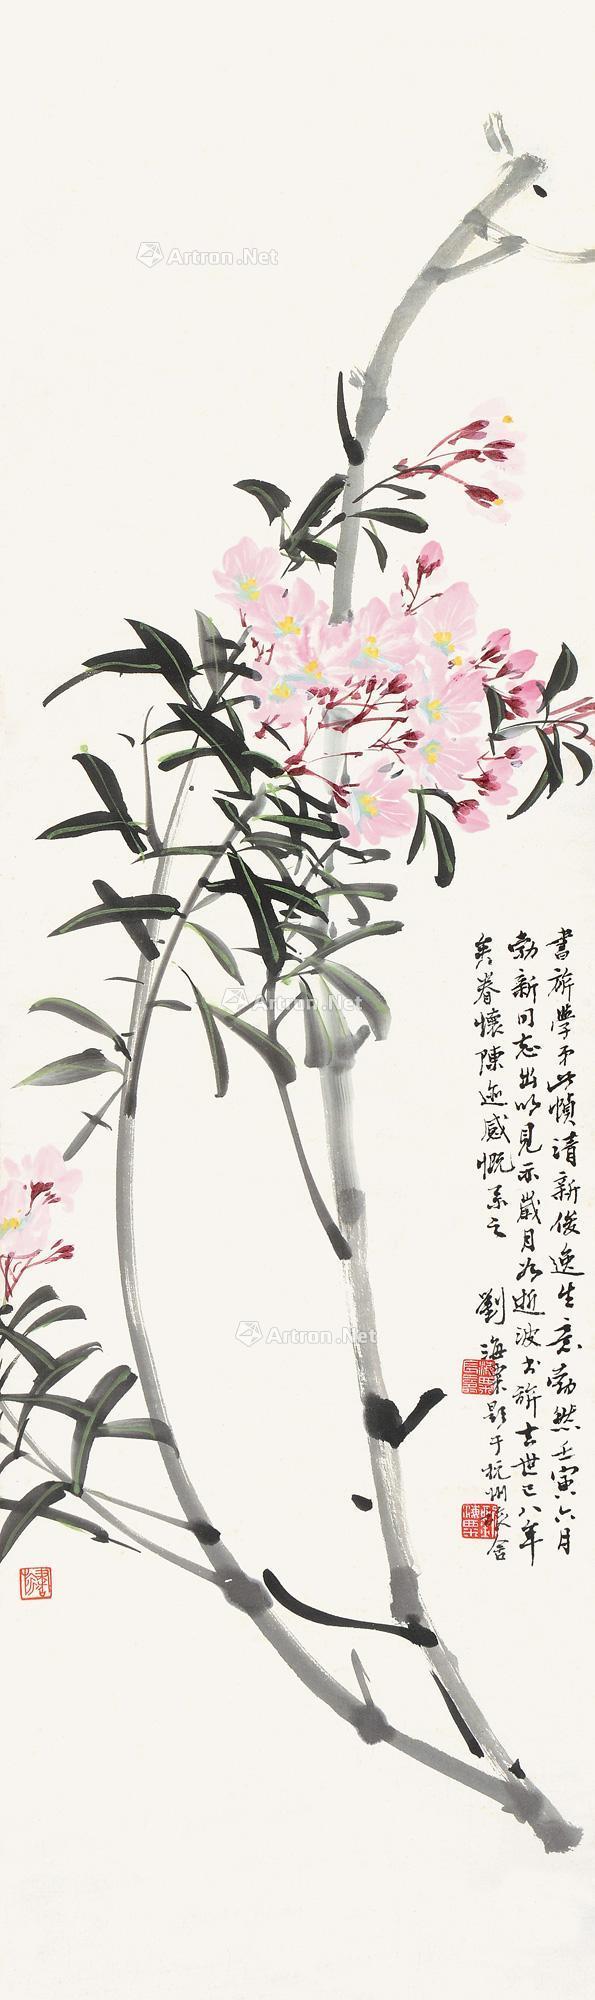 書旂學弟此幀清新俊逸生意勃然壬寅六月
勃新同志出以見示歲月如逝波書旂去世已八年
矣眷懷陳迹感慨系之 劉海粟題于杭州旅舍
Artron.Net
Artron.Net
Artron.Net